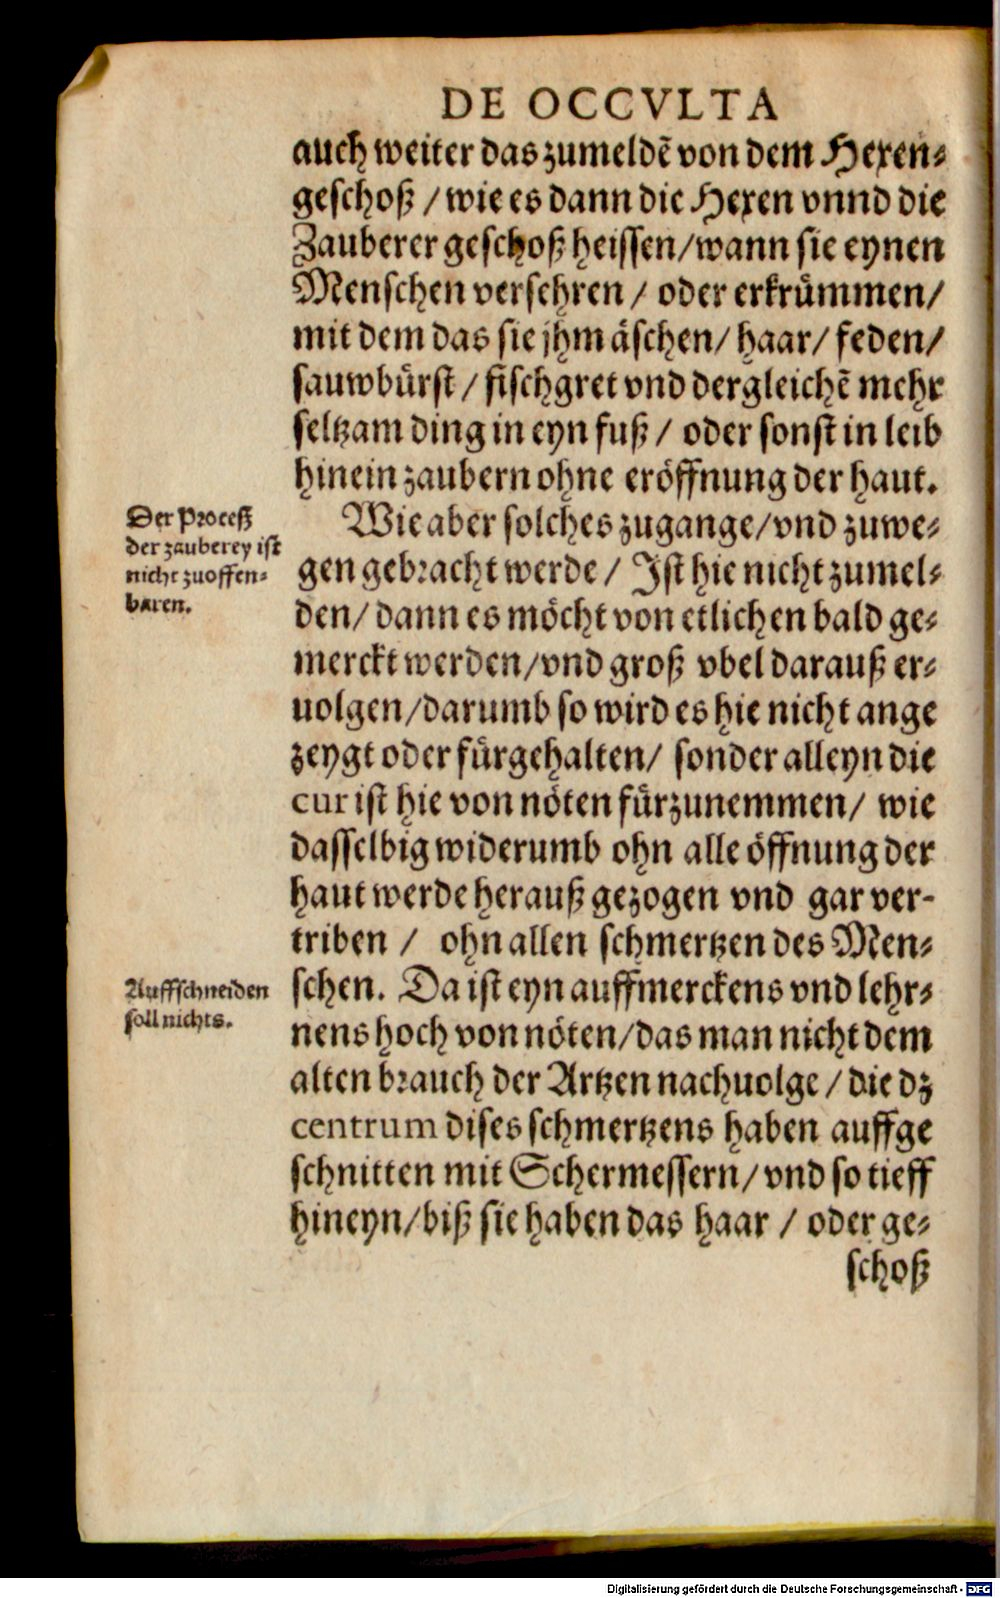 DE OCCVLTA
auch weiter das zumeldẽ von dem Hexen⸗
geschoß / wie es dann die Hexen vnnd die
Zauberer geschoß heissen/wann sie eynen
Menschen versehren / oder erkruͤmmen/
mit dem das sie jhm aͤschen/ haar/ feden/
sauwbuͤrst / fischgret vnd dergleichẽ mehr
seltzam ding in eyn fuß / oder sonst in leib
hinein zaubern ohne eroͤffnung der haut.
Der Proceß
der zauberey ist
nicht zuoffen⸗
baren.
Wie aber solches zugange/vnd zuwe⸗
gen gebracht werde / Jst hie nicht zumel⸗
den/ dann es moͤcht von etlichen bald ge⸗
merckt werden/vnd groß vbel darauß er⸗
uolgen/darumb so wird es hie nicht ange
zeygt oder fuͤrgehalten/ sonder alleyn die
cur ist hie von noͤten fuͤrzunemmen/ wie
dasselbig widerumb ohn alle oͤffnung der
haut werde herauß gezogen vnd gar ver-
triben / ohn allen schmertzen des Men⸗
Auffschneiden
soll nichts.
schen. Da ist eyn auffmerckens vnd lehr⸗
nens hoch von noͤten/das man nicht dem
alten brauch der Artzen nachuolge / die dz
centrum dises schmertzens haben auffge
schnitten mit Schermessern/vnd so tieff
hineyn/biß sie haben das haar / oder ge⸗
schoß
Digitalisierung gefördert durch die Deutsche Forschungsgemeinschaft - DFG